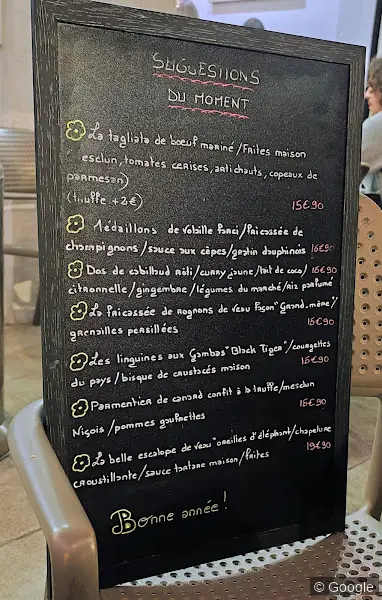 SUGGESTIONS
DU MOMENT
La tagliata de boeuf mariné/Frites maison
esclun, tomates cerises, artichauts, copeaux de
parmesan)
(truffe +2€)
15€90
Médaillons de volaille farci/fricassée de
champignons/sauce aux cèpes/gratin dauphinois 16€90
Dos de cabillaud rôti/curry jaune/lait de coco/ 16€90
citronnelle/gingembre/légumes du marché/riz parfumé
La fricassée de rognons de veau façon "Grand-mère"/
grenailles persillées 15€90
Les linguines aux Gambas "Black Tiger"/courgettes
du pays/bisque de crustacés maison 15€90
Parmentier de canard confit à la truffe/mesclun
Niçois/pommes gaufrettes 15€90
La belle escalope de veau "oreilles d'éléphant/chapelure
croustillante/sauce tartare maison/frites 19€90
Bonne année!
© Google